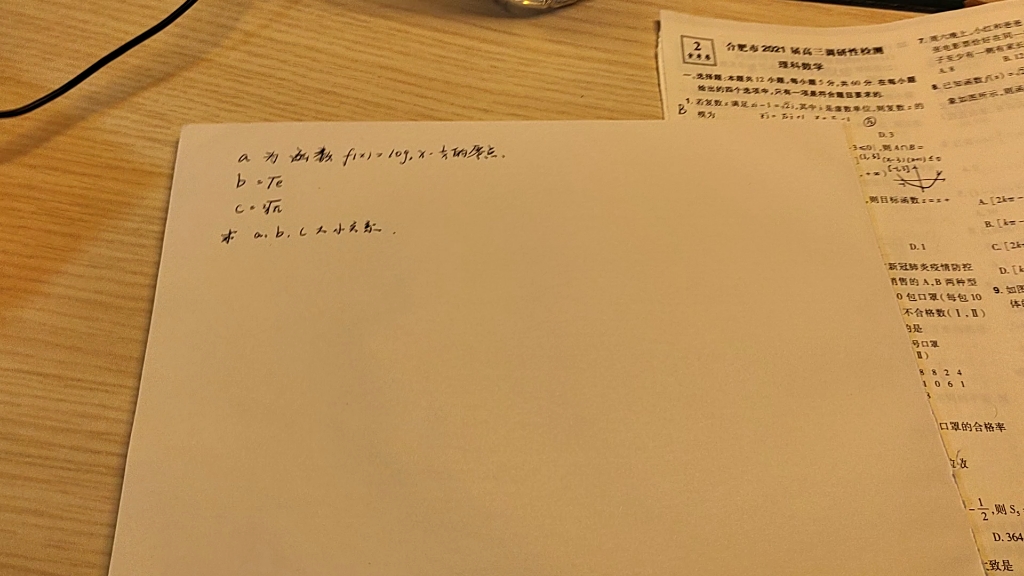 a 为 函数 f(x) = log₂x - 1/x 的零点.
b = √e
c = ∛π
求 a, b, c 大小关系.
2
合肥市 2021 届高三调研性检测
理科数学
一、选择题:本题共 12 小题,每小题 5 分,共 60 分. 在每小题
给出的四个选项中,只有一项是符合题目要求的.
B
1. 若复数 z 满足 zi-1=√2i,其中 i 是虚数单位,则复数 z 的
模为
D. 3
3≤0},则 A∩B=
,+∞)
,则目标函数 z=x+
D. 1
新冠肺炎疫情防控
销售的 A,B 两种型
0 包口罩(每包 10
不合格数(Ⅰ,Ⅱ)
的是
号口罩
Ⅱ)
8 8 2 4
1 0 6 1
3
口罩的合格率
-1/2,则 S₅
D. 364
致是
7. 周六晚上,小红和爸爸
张电影票恰好在同一
子至少有一侧有家长
A. 8
B. 12
8. 已知函数 f(x)=
象如图所示,则函
A. [2kπ-
B. [kπ-
C. [2k
D. [k
9. 如图
体的